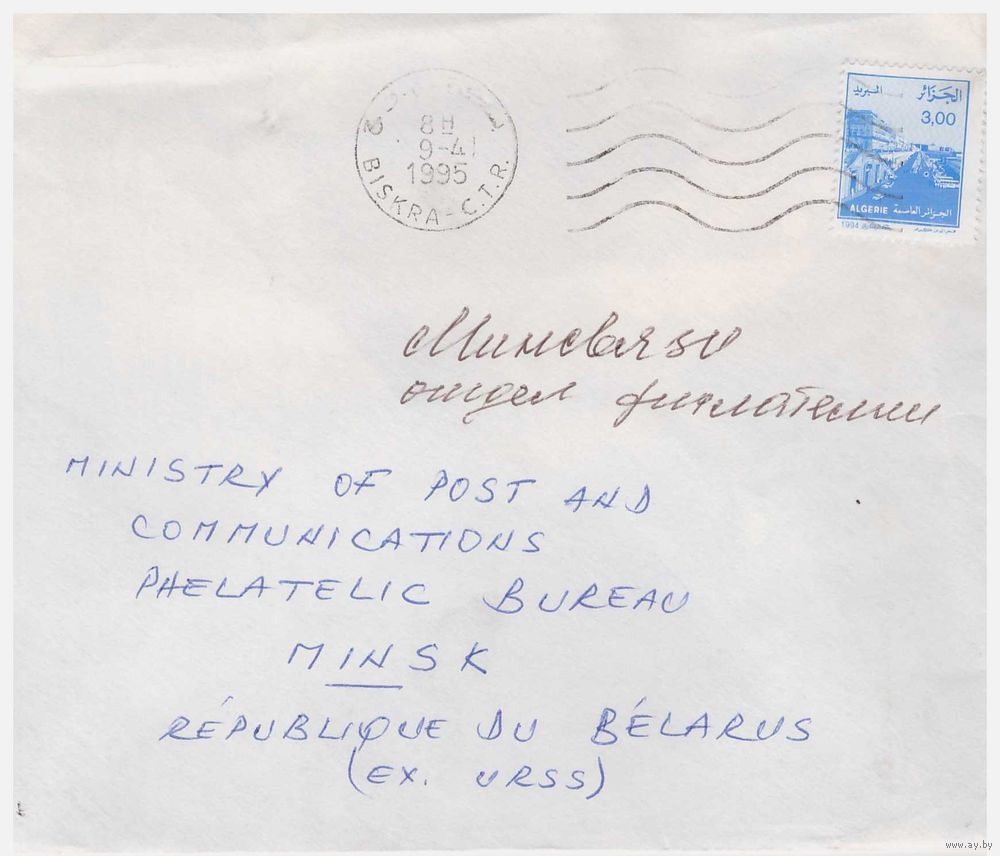 8H
9-4
1995
BISKRA-C.T.R.
البريد الجزائر
3,00
ALGERIE الجزائر العاصمة
1994
Минсвязи
отдел филателии
MINISTRY OF POST AND
COMMUNICATIONS
PHELATELIC BUREAU
MINSK
RÉPUBLIQUE DU BÉLARUS
(EX. URSS)
www.ay.by